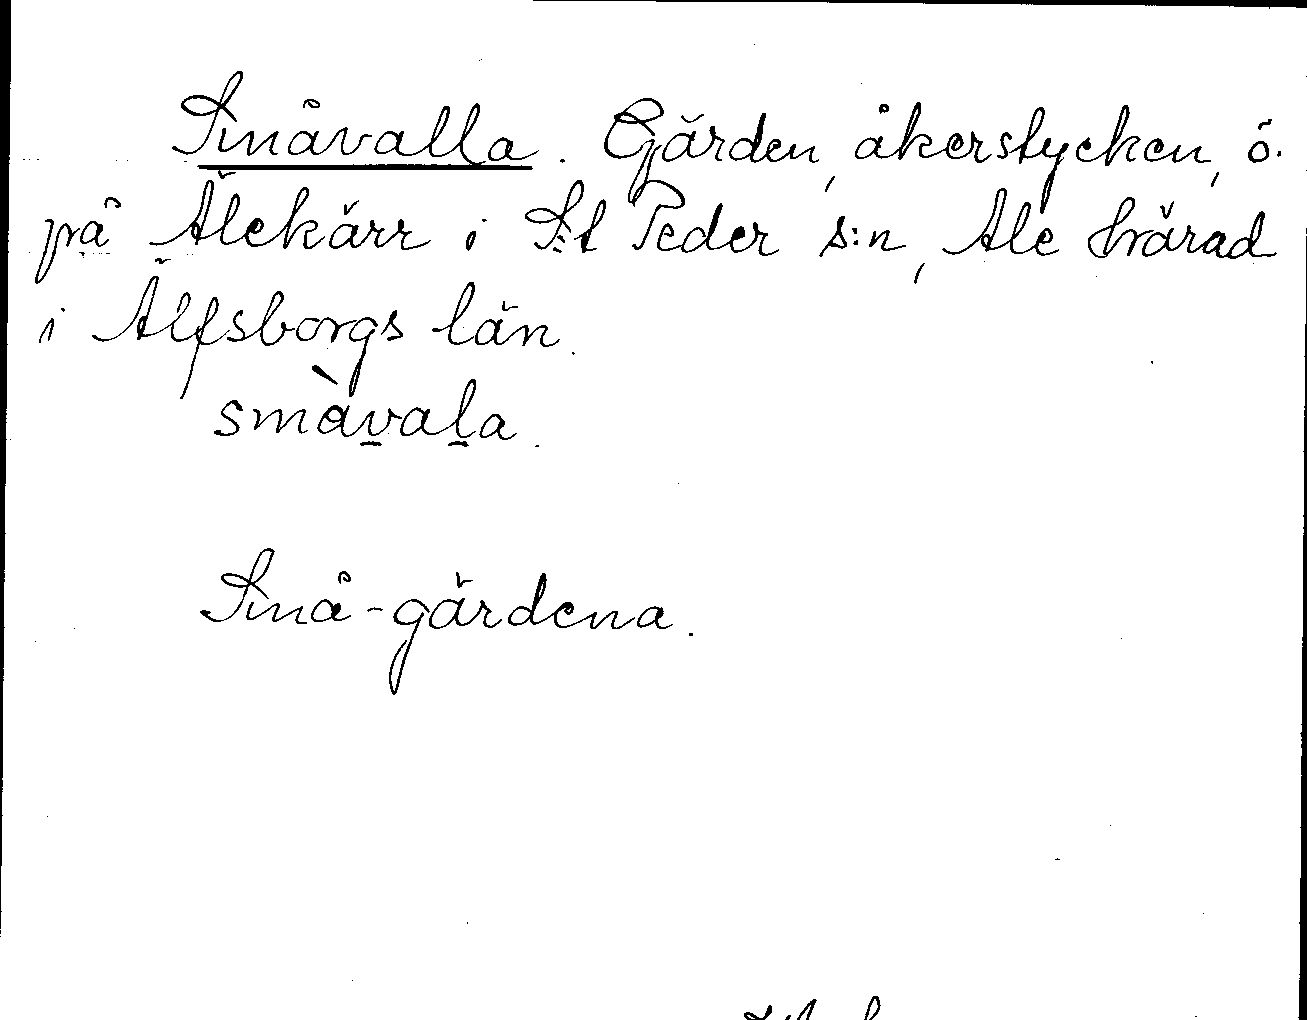 Småvalla. Gärden, åkerstycken, ö.
på Älekärr i S:t Peder s:n, Ale härad
i Älfsborgs län.
smàv̲al̲a.
Små-gärdena.